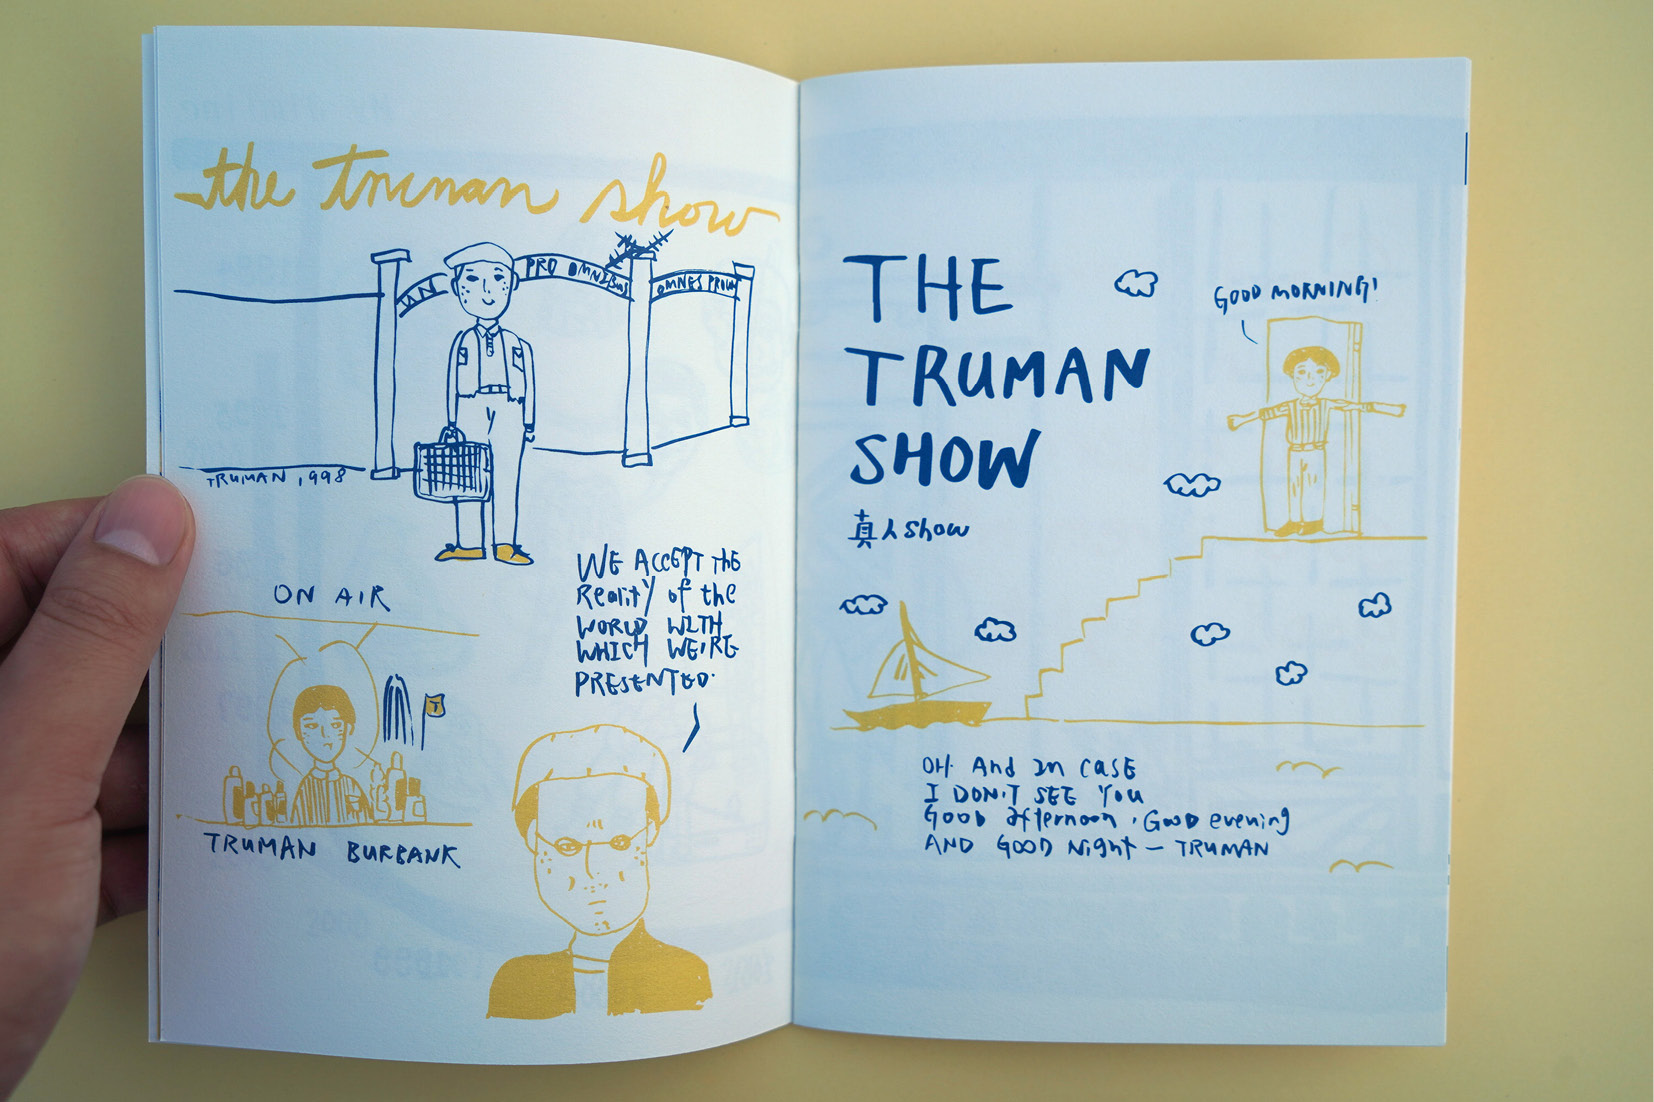 the truman show
PRO OMNIBUS
OMNES PRO
TRUMAN 1998
ON AIR
T
TRUMAN BURBANK
WE ACCEPT THE
ReaLITY of the
WORLD WITH
WHICH WE'RE
PRESENTED.
THE
TRUMAN
SHOW
真人show
GOOD MORNING!
OH. And In CASE
I DON'T SEE YOU
GOOD afternoon, GOOD evening
AND GOOD Night — TRUMAN